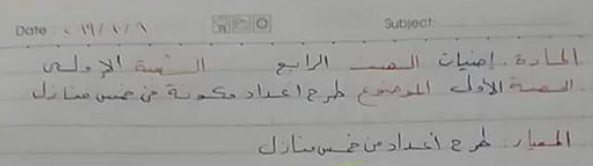 Date: ١٦/١٠/٩ Subject:
المادة. رياضيات الصف الرابع الفترة الأولى
الحصة الأولى الموضوع طرح اعداد مكونة من خمس منازل
المعيار: طرح أعداد من خمس منازل